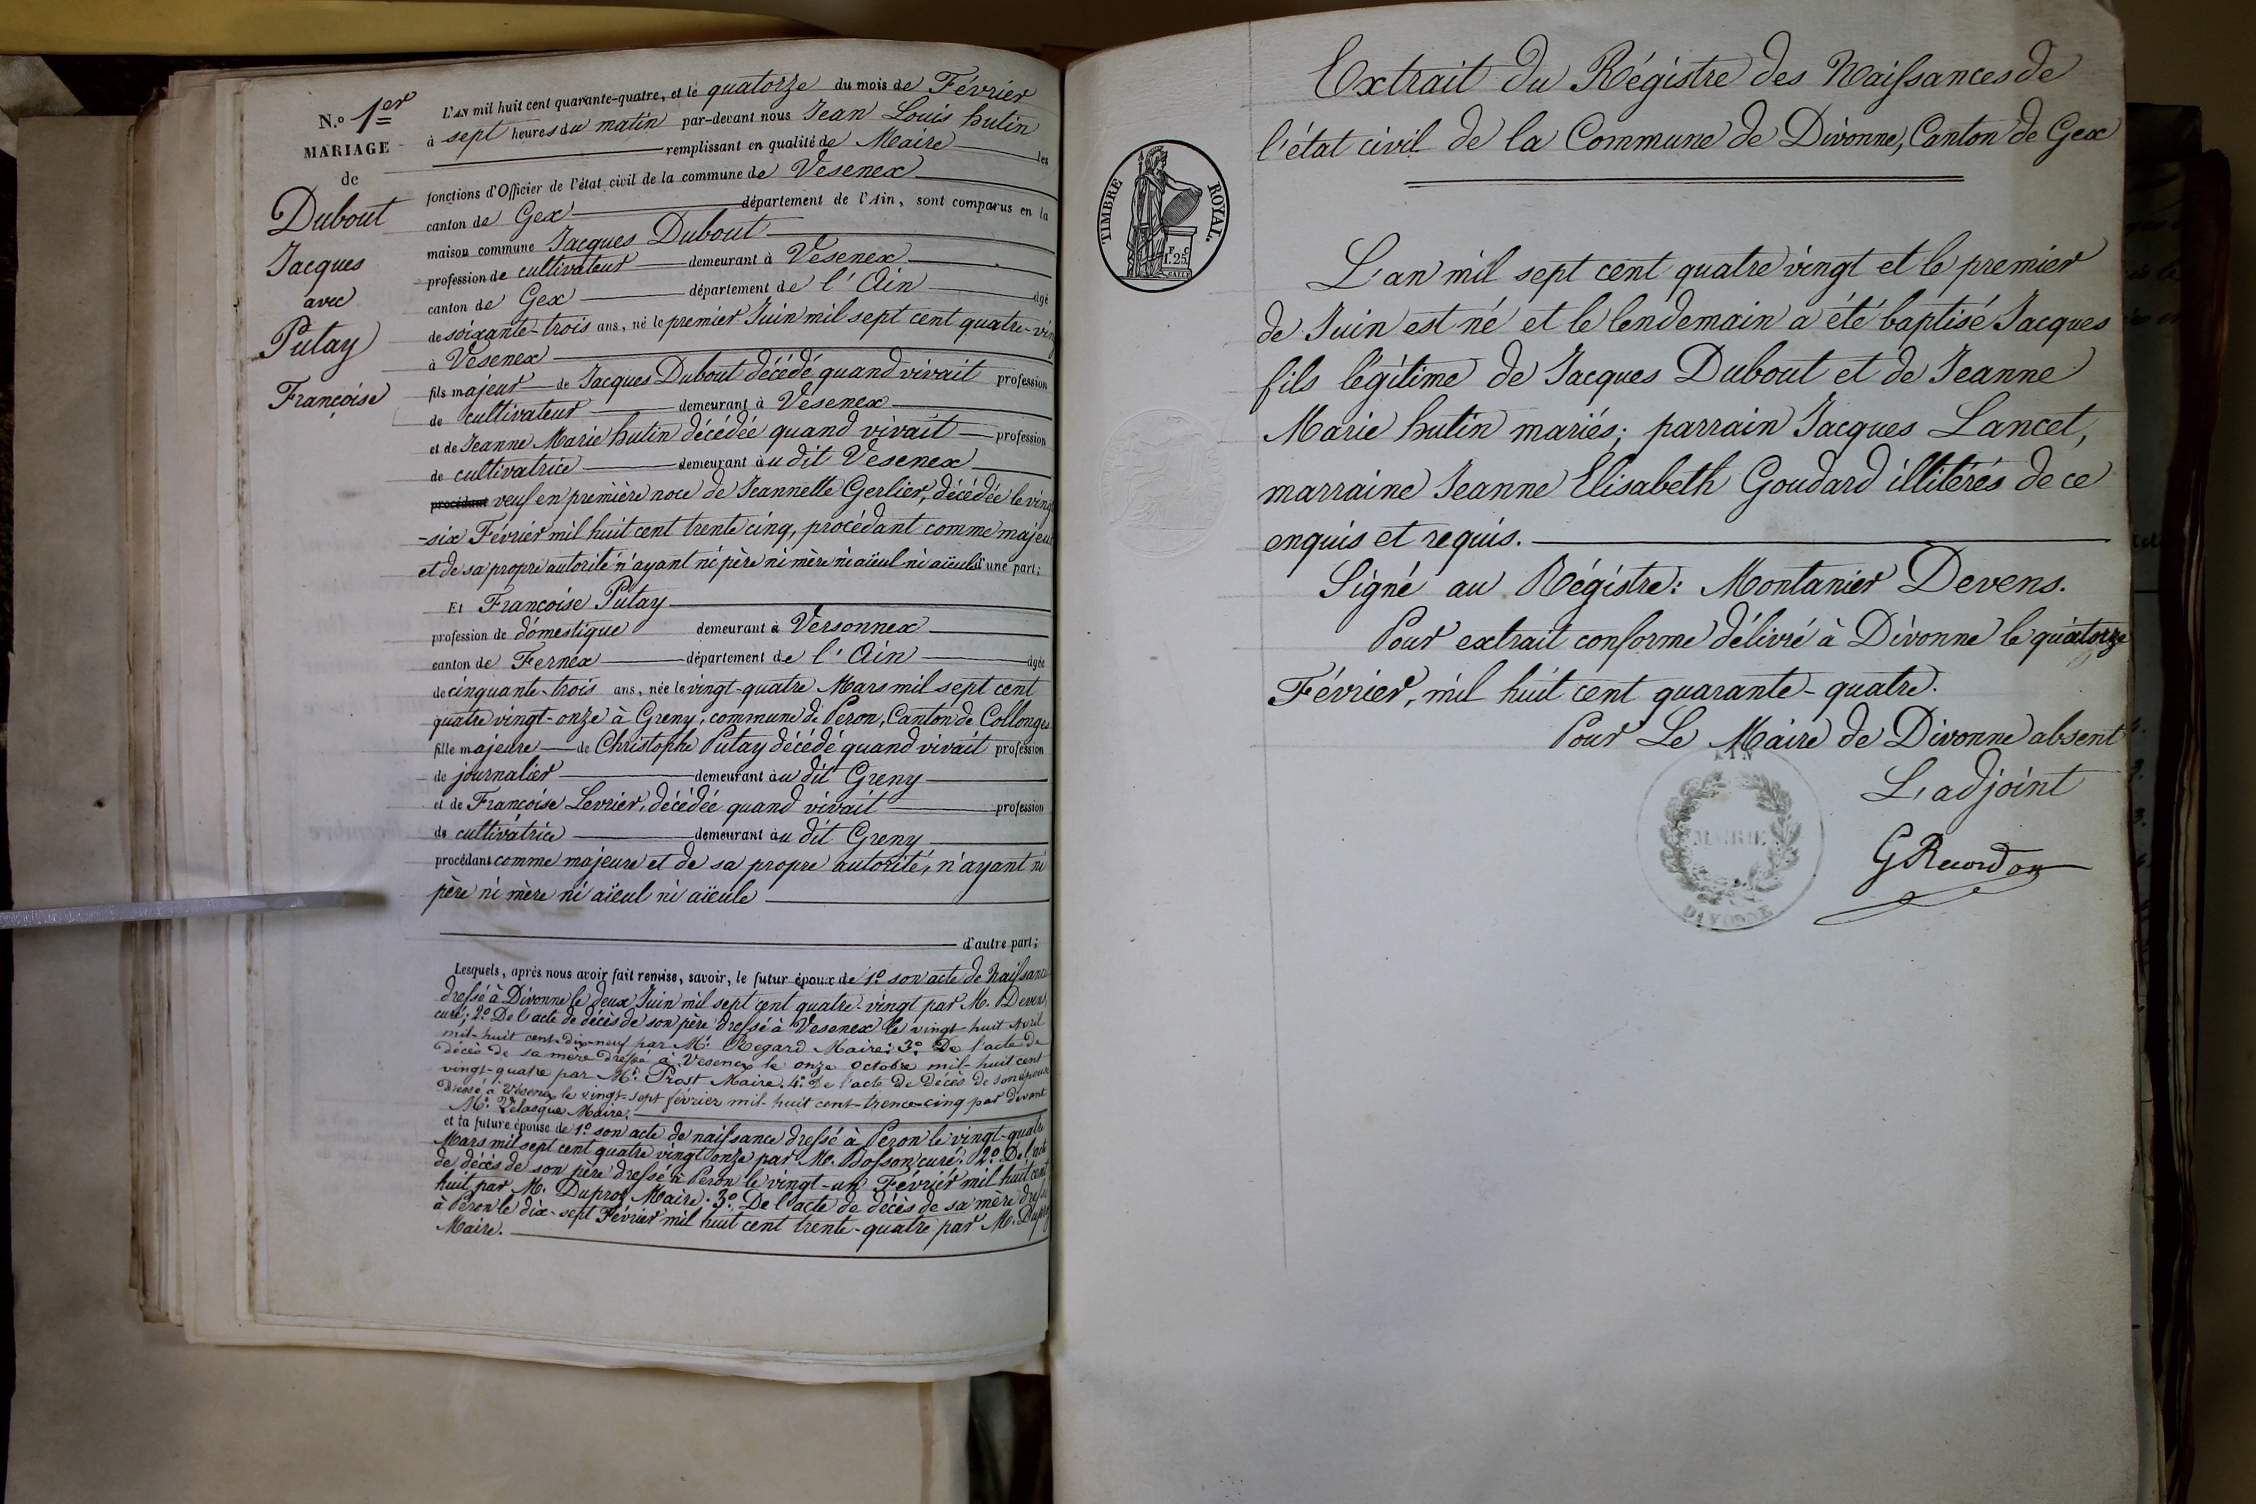 N.º 1er
MARIAGE
de
Dubout
Jacques
avec
Putay
Françoise
L'AN mil huit cent quarante-quatre, et le quatorze du mois de Février
à sept heures du matin par-devant nous Jean Louis hutin
remplissant en qualité de Maire les
fonctions d'Officier de l'état civil de la commune de Vesenex
canton de Gex département de l'Ain, sont comparus en la
maison commune Jacques Dubout
profession de cultivateur demeurant à Vesenex
canton de Gex département de l'Ain âgé
de soixante-trois ans, né le premier Juin mil sept cent quatre-vin
à Vesenex
fils majeur de Jacques Dubout décédé quand vivait profession
de cultivateur demeurant à Vesenex
et de Jeanne Marie hutin décédée quand vivait profession
de cultivatrice demeurant au dit Vesenex
procédant veuf en première noce de Jeannette Gerlier, décédée le ving
-six Février mil huit cent trente cinq, procédant comme majeur
et de sa propre autorité n'ayant ni père ni mère ni aïeul ni aïeule d'une part;
Et Françoise Putay
profession de domestique demeurant à Versonnex
canton de Fernex département de l'Ain âgée
de cinquante-trois ans, née le vingt-quatre Mars mil sept cent
quatre vingt-onze à Greny, commune de Peron, Canton de Collonges
fille majeure de Christophe Putay décédé quand vivait profession
de journalier demeurant au dit Greny
et de Françoise Levrier, décédée quand vivait profession
de cultivatrice demeurant au dit Greny
procédant comme majeure et de sa propre autorité, n'ayant ni
père ni mère ni aïeul ni aïeule
d'autre part;
Lesquels, après nous avoir fait remise, savoir, le futur époux de 1º son acte de Naissance
dressé à Divonne le deux Juin mil sept cent quatre-vingt par M. Devens,
curé; 2º De l'acte de décès de son père dressé à Vesenex le vingt-huit Avril
mil-huit cent-dix-neuf par Mr. Regard Maire; 3º De l'acte de
décès de sa mère dressé à Vesenex le onze octobre mil-huit cent
vingt-quatre par Mr. Prost Maire. 4º De l'acte de Décès de son épouse
Dressé à Vesenex le vingt-sept février mil-huit cent-trente-cinq par devant
Mr. Velasque Maire.
et la future épouse de 1º son acte de naissance dressé à Peron le vingt-quatre
Mars mil sept cent quatre vingt onze par M. Bosson curé. 2º De l'acte
de décès de son père dressé à Peron le vingt-un Février mil huit cent
huit par M. Duproz Maire. 3º De l'acte de décès de sa mère dressé
à Péron le dix-sept Février mil huit cent trente-quatre par M. Duproz
Maire.
TIMBRE ROYAL.
F. C.
1. 25
Extrait du Régistre des Naissances de
l'état civil de la Commune de Divonne, Canton de Gex
L'an mil sept cent quatre vingt et le premier
de Juin est né et le lendemain a été baptisé Jacques
fils légitime de Jacques Dubout et de Jeanne
Marie hutin mariés; parrain Jacques Lancet,
marraine Jeanne Elisabeth Goudard illitérés de ce
enquis et requis.
Signé au Régistre: Montanier Devens.
Pour extrait conforme délivré à Divonne le quatorze
Février, mil huit cent quarante-quatre.
Pour Le Maire de Divonne absent
L'adjoint
GRecordon
AIN
MAIRIE
DIVONNE